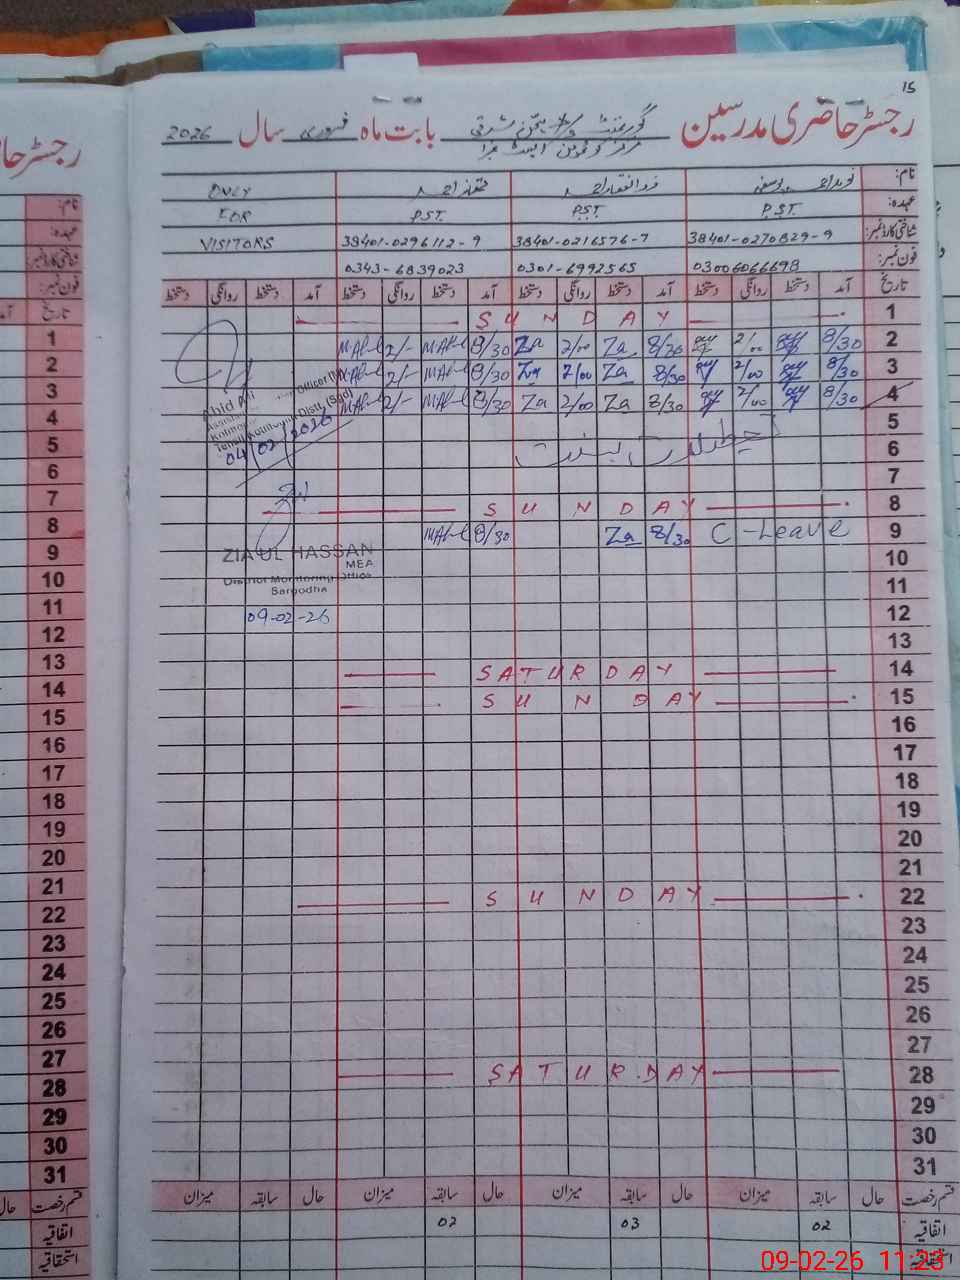 15
رجسٹر حاضری مدرسین گورنمنٹ بابت ماہ فروری سال 2026
نام: نوید احمد یوسفی ذوالفقار احمد ممتاز احمد ONLY
عہدہ: P.S.T. P.S.T. P.S.T. FOR
شناختی کارڈ نمبر: 38401-0270829-9 38401-0216576-7 38401-0296112-9 VISITORS
فون نمبر: 03006066698 0301-6992565 0343-6839023
تاریخ آمد دستخط روانگی دستخط آمد دستخط روانگی دستخط آمد دستخط روانگی دستخط آمد دستخط روانگی دستخط
1 SUNDAY
2 8/30 2/00 8/30 Za 2/00 Za 8/30 2/-
3 8/30 2/00 8/30 Za 2/00 Za 8/30 2/-
4 8/30 2/00 8/30 Za 2/00 Za 8/30 2/-
Abid Ali
04/02/2026
5
6
7
8 SUNDAY
9 C-Leave 8/30 Za 8/30
ZIA UL HASSAN
MEA
District Monitoring Office
Sargodha
09-02-26
10
11
12
13
14 SATURDAY
15 SUNDAY
16
17
18
19
20
21
22 SUNDAY
23
24
25
26
27
28 SATURDAY
29
30
31
قسم رخصت حال سابقہ میزان حال سابقہ میزان حال سابقہ میزان حال سابقہ میزان
اتفاقیہ 02 03 02
استحقاقیہ
رجسٹر حا
نام:
عہدہ:
شناختی کارڈ نمبر:
فون نمبر:
تاریخ
1
2
3
4
5
6
7
8
9
10
11
12
13
14
15
16
17
18
19
20
21
22
23
24
25
26
27
28
29
30
31
قسم رخصت حال
اتفاقیہ
استحقاقیہ
09-02-26 11:23